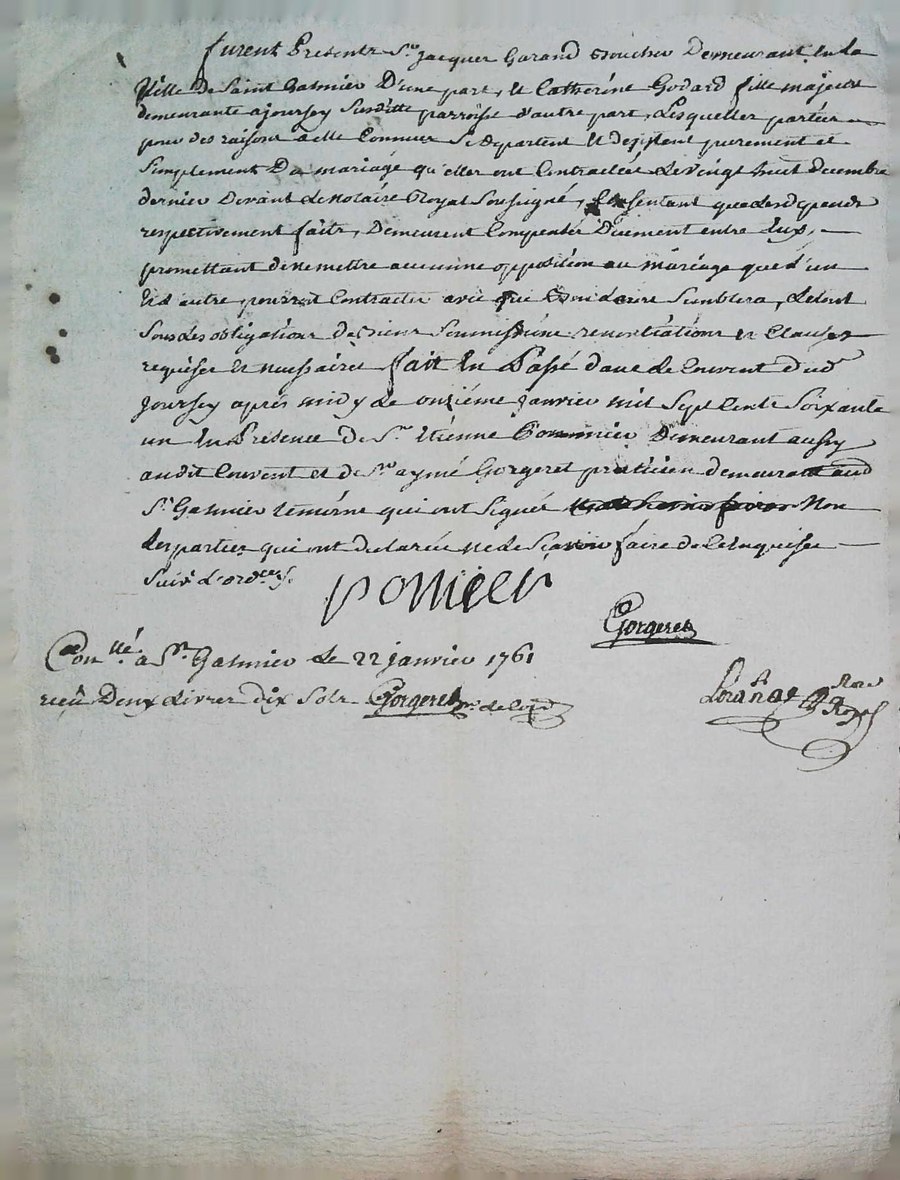 furent Presentz Sr. Jacques Garand Boucher Demeurant En la
Ville De Saint Galmier D'une part, Et Catherine Godard fille majeure
demeurante a Joursey Susditte parroisse d'autre part, Lesquelles parties
pour des raisons a elle Connües Se Departent Et desistent purement et
Simplement Du mariage qu'elles ont Contractées Le Vingt huit Decembre
dernier Devant Le Notaire Royal Soussigné, Consentant que
respectivement faits, Demeurent Compensés Duement entre Eux,
promettant de ne mettre aucunne opposition au mariage que L'un
Et L'autre pourront Contracter avec que Bon Leur Semblera, Le tout
Sous Les obligations De Biens Soumissions renontiations Et Clauses
requises Et nessaires fait En Passé dans Le Couvent Dud.
Joursey après midy Le onziéme Janvier mil Sept Cents Soixante
un En Présence De Sr. Etienne Pommier Demeurant aussy
audit Couvent et de Sr. aymé Gorgeret praticien demeurant aud
St. Galmier temoins qui ont Signés Non
Les parties qui ont declarées ne Le Scavoir faire de Ce Enquises
Suivt. L'ordce.
pomier
Gorgeret
Conllé. a St. Galmier Le 22 janvier 1761
reçû Deux Livres dix Sols Gorgeret
Royal